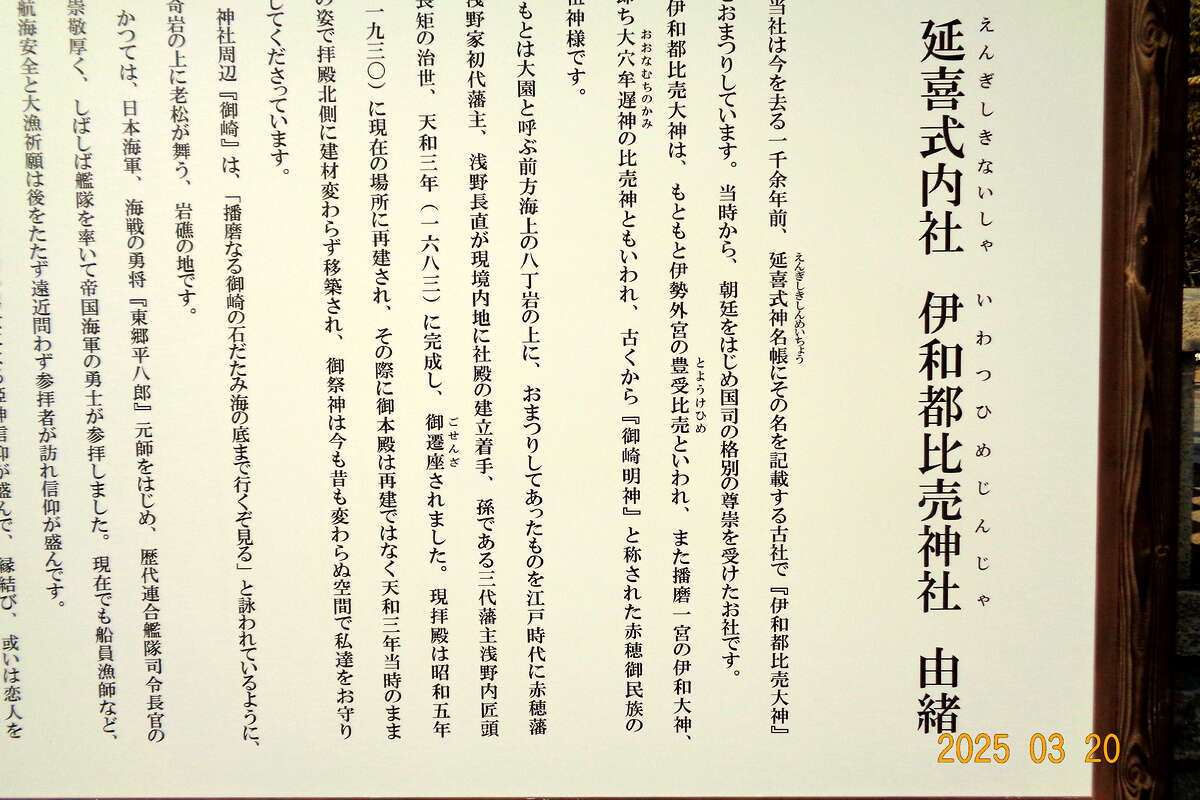 えんぎしきないしゃ いわつひめじんじゃ
延喜式内社 伊和都比売神社 由緒
当社は今を去る一千余年前、延喜式神名帳にその名を記載する古社で『伊和都比売大神』
えんぎしきしんめいちょう
をおまつりしています。当時から、朝廷をはじめ国司の格別の尊崇を受けたお社です。
伊和都比売大神は、もともと伊勢外宮の豊受比売といわれ、また播磨一宮の伊和大神、
とようけひめ
即ち大穴牟遅神の比売神ともいわれ、古くから『御崎明神』と称された赤穂御民族の
おおなむちのかみ
祖神様です。
もとは大園と呼ぶ前方海上の八丁岩の上に、おまつりしてあったものを江戸時代に赤穂藩
浅野家初代藩主、浅野長直が現境内地に社殿の建立着手、孫である三代藩主浅野内匠頭
長矩の治世、天和三年（一六八三）に完成し、御遷座されました。現拝殿は昭和五年
ごせんざ
一九三〇）に現在の場所に再建され、その際に御本殿は再建ではなく天和三年当時のまま
の姿で拝殿北側に建材変わらず移築され、御祭神は今も昔も変わらぬ空間で私達をお守り
してくださっています。
神社周辺『御崎』は、「播磨なる御崎の石だたみ海の底まで行くぞ見る」と詠われているように、
奇岩の上に老松が舞う、岩礁の地です。
かつては、日本海軍、海戦の勇将『東郷平八郎』元師をはじめ、歴代連合艦隊司令長官の
崇敬厚く、しばしば艦隊を率いて帝国海軍の勇士が参拝しました。現在でも船員漁師など、
航海安全と大漁祈願は後をたたず遠近問わず参拝者が訪れ信仰が盛んです。
姫神信仰が盛んで、縁結び、或いは恋人を
2025 03 20